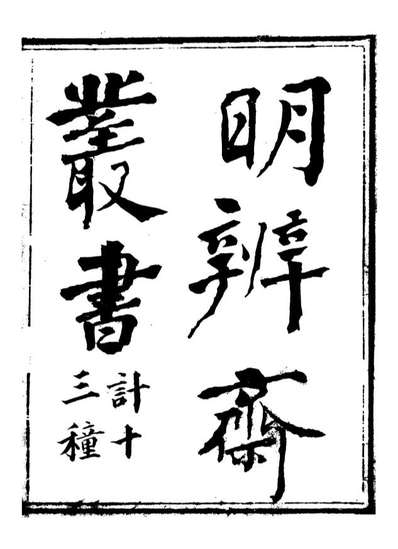 明辨齋
叢書
計十
三種